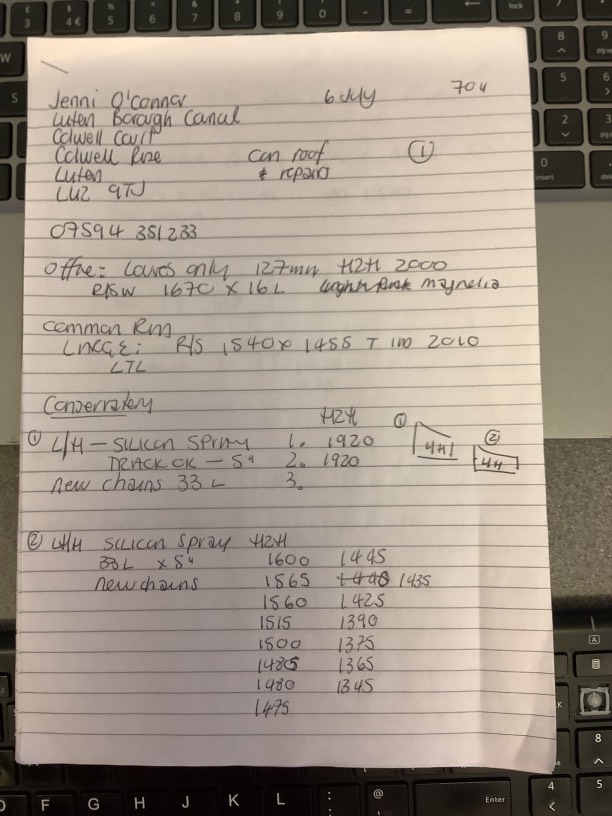 Jenni O'Connor 6 July 704
Luten Borough Canal
Colwell Court
Colwell Rize con roof ①
Luten & repairs
LU2 9TJ
07594 351233
Office: Louves only 127mm H2H 2000
R/SW 1670 x 16L magnolia
common Rm
LNCGE: R/S 1540 x 1455 T 100 2010
LTL
Conservatory
H2H ①
① L/H - SILICON SPRAY 1. 1920 4H ②
TRACK OK - 5" 2. 1920 4H
new chains 33 L 3.
② L/H SILICON Spray H2H
33L x 5" 1600 1445
new chains 1565 1440 1435
1560 1425
1515 1390
1500 1375
1485 1365
1480 1345
1475